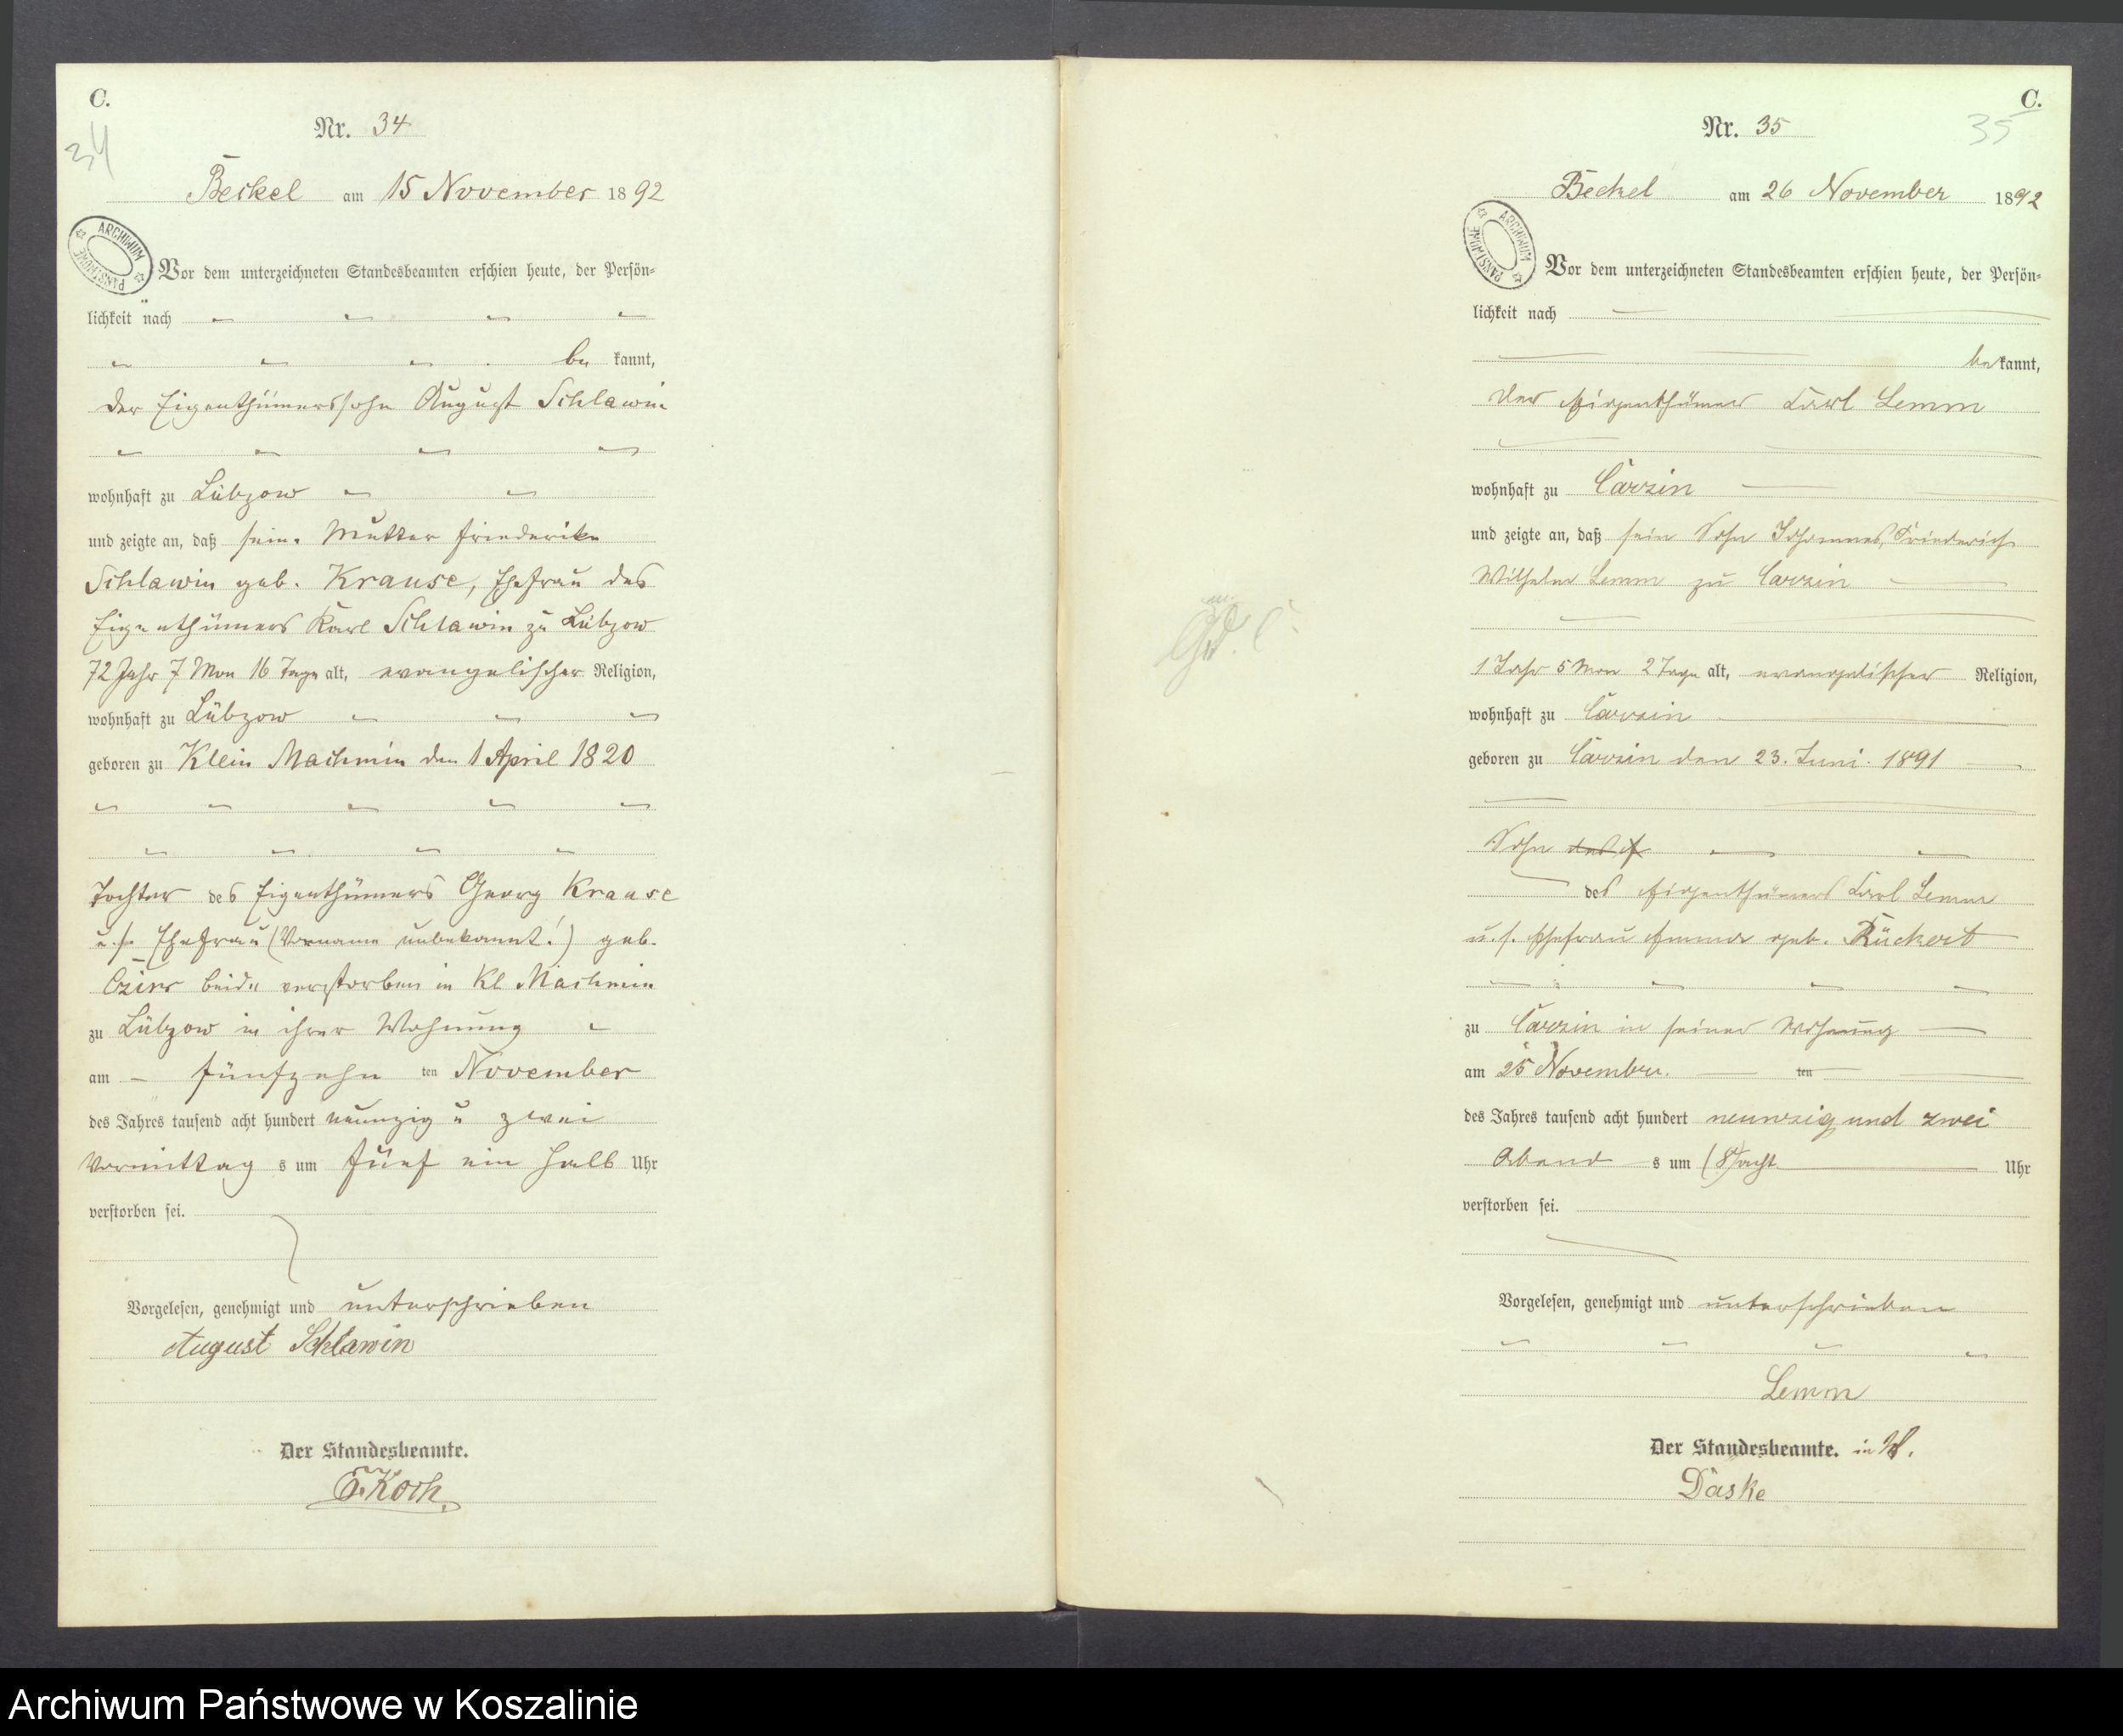 C.
34
Nr. 34
Beckel am 15 November 1892
ARCHIWUM PAŃSTWOWE
Vor dem unterzeichneten Standesbeamten erschien heute, der Persön=
lichkeit nach
be kannt,
der Eigenthümerssohn August Schlawin
wohnhaft zu Lübzow
und zeigte an, daß seine Mutter Friederike
Schlawin geb. Krause, Ehefrau des
Eigenthümers Karl Schlawin zu Lübzow
72 Jahr 7 Mon 16 Tage alt, evangelischer Religion,
wohnhaft zu Lübzow
geboren zu Klein Machmin den 1 April 1820
Tochter des Eigenthümers Georg Krause
u. s. Ehefrau (Vorname unbekannt!) geb.
beide verstorben in Kl Machmin
zu Lübzow in ihrer Wohnung
am fünfzehn ten November
des Jahres tausend acht hundert neunzig u zwei
Vormittag s um fünf ein halb Uhr
verstorben sei.
Vorgelesen, genehmigt und unterschrieben
August Schlawin
Der Standesbeamte.
Koch
C.
35
Nr. 35
Beckel am 26 November 1892
ARCHIWUM PAŃSTWOWE
Vor dem unterzeichneten Standesbeamten erschien heute, der Persön=
lichkeit nach
be kannt,
der Eigenthümer Carl Lemm
wohnhaft zu Carzin
und zeigte an, daß sein Sohn Johannes, Friederich
Wilhelm Lemm zu Carzin
1 Jahr 5 Mon 2 Tage alt, evangelischer Religion,
wohnhaft zu Carzin
geboren zu Carzin den 23. Juni. 1891
Sohn
des Eigenthümers Carl Lemm
u. s. Ehefrau Emma geb. Rückert
zu Carzin in seiner Wohnung
am 25 November. ten
des Jahres tausend acht hundert neunzig und zwei
Abend s um (8) acht Uhr
verstorben sei.
Vorgelesen, genehmigt und unterschrieben
Lemm
Der Standesbeamte. in V.
Daske
Archiwum Państwowe w Koszalinie